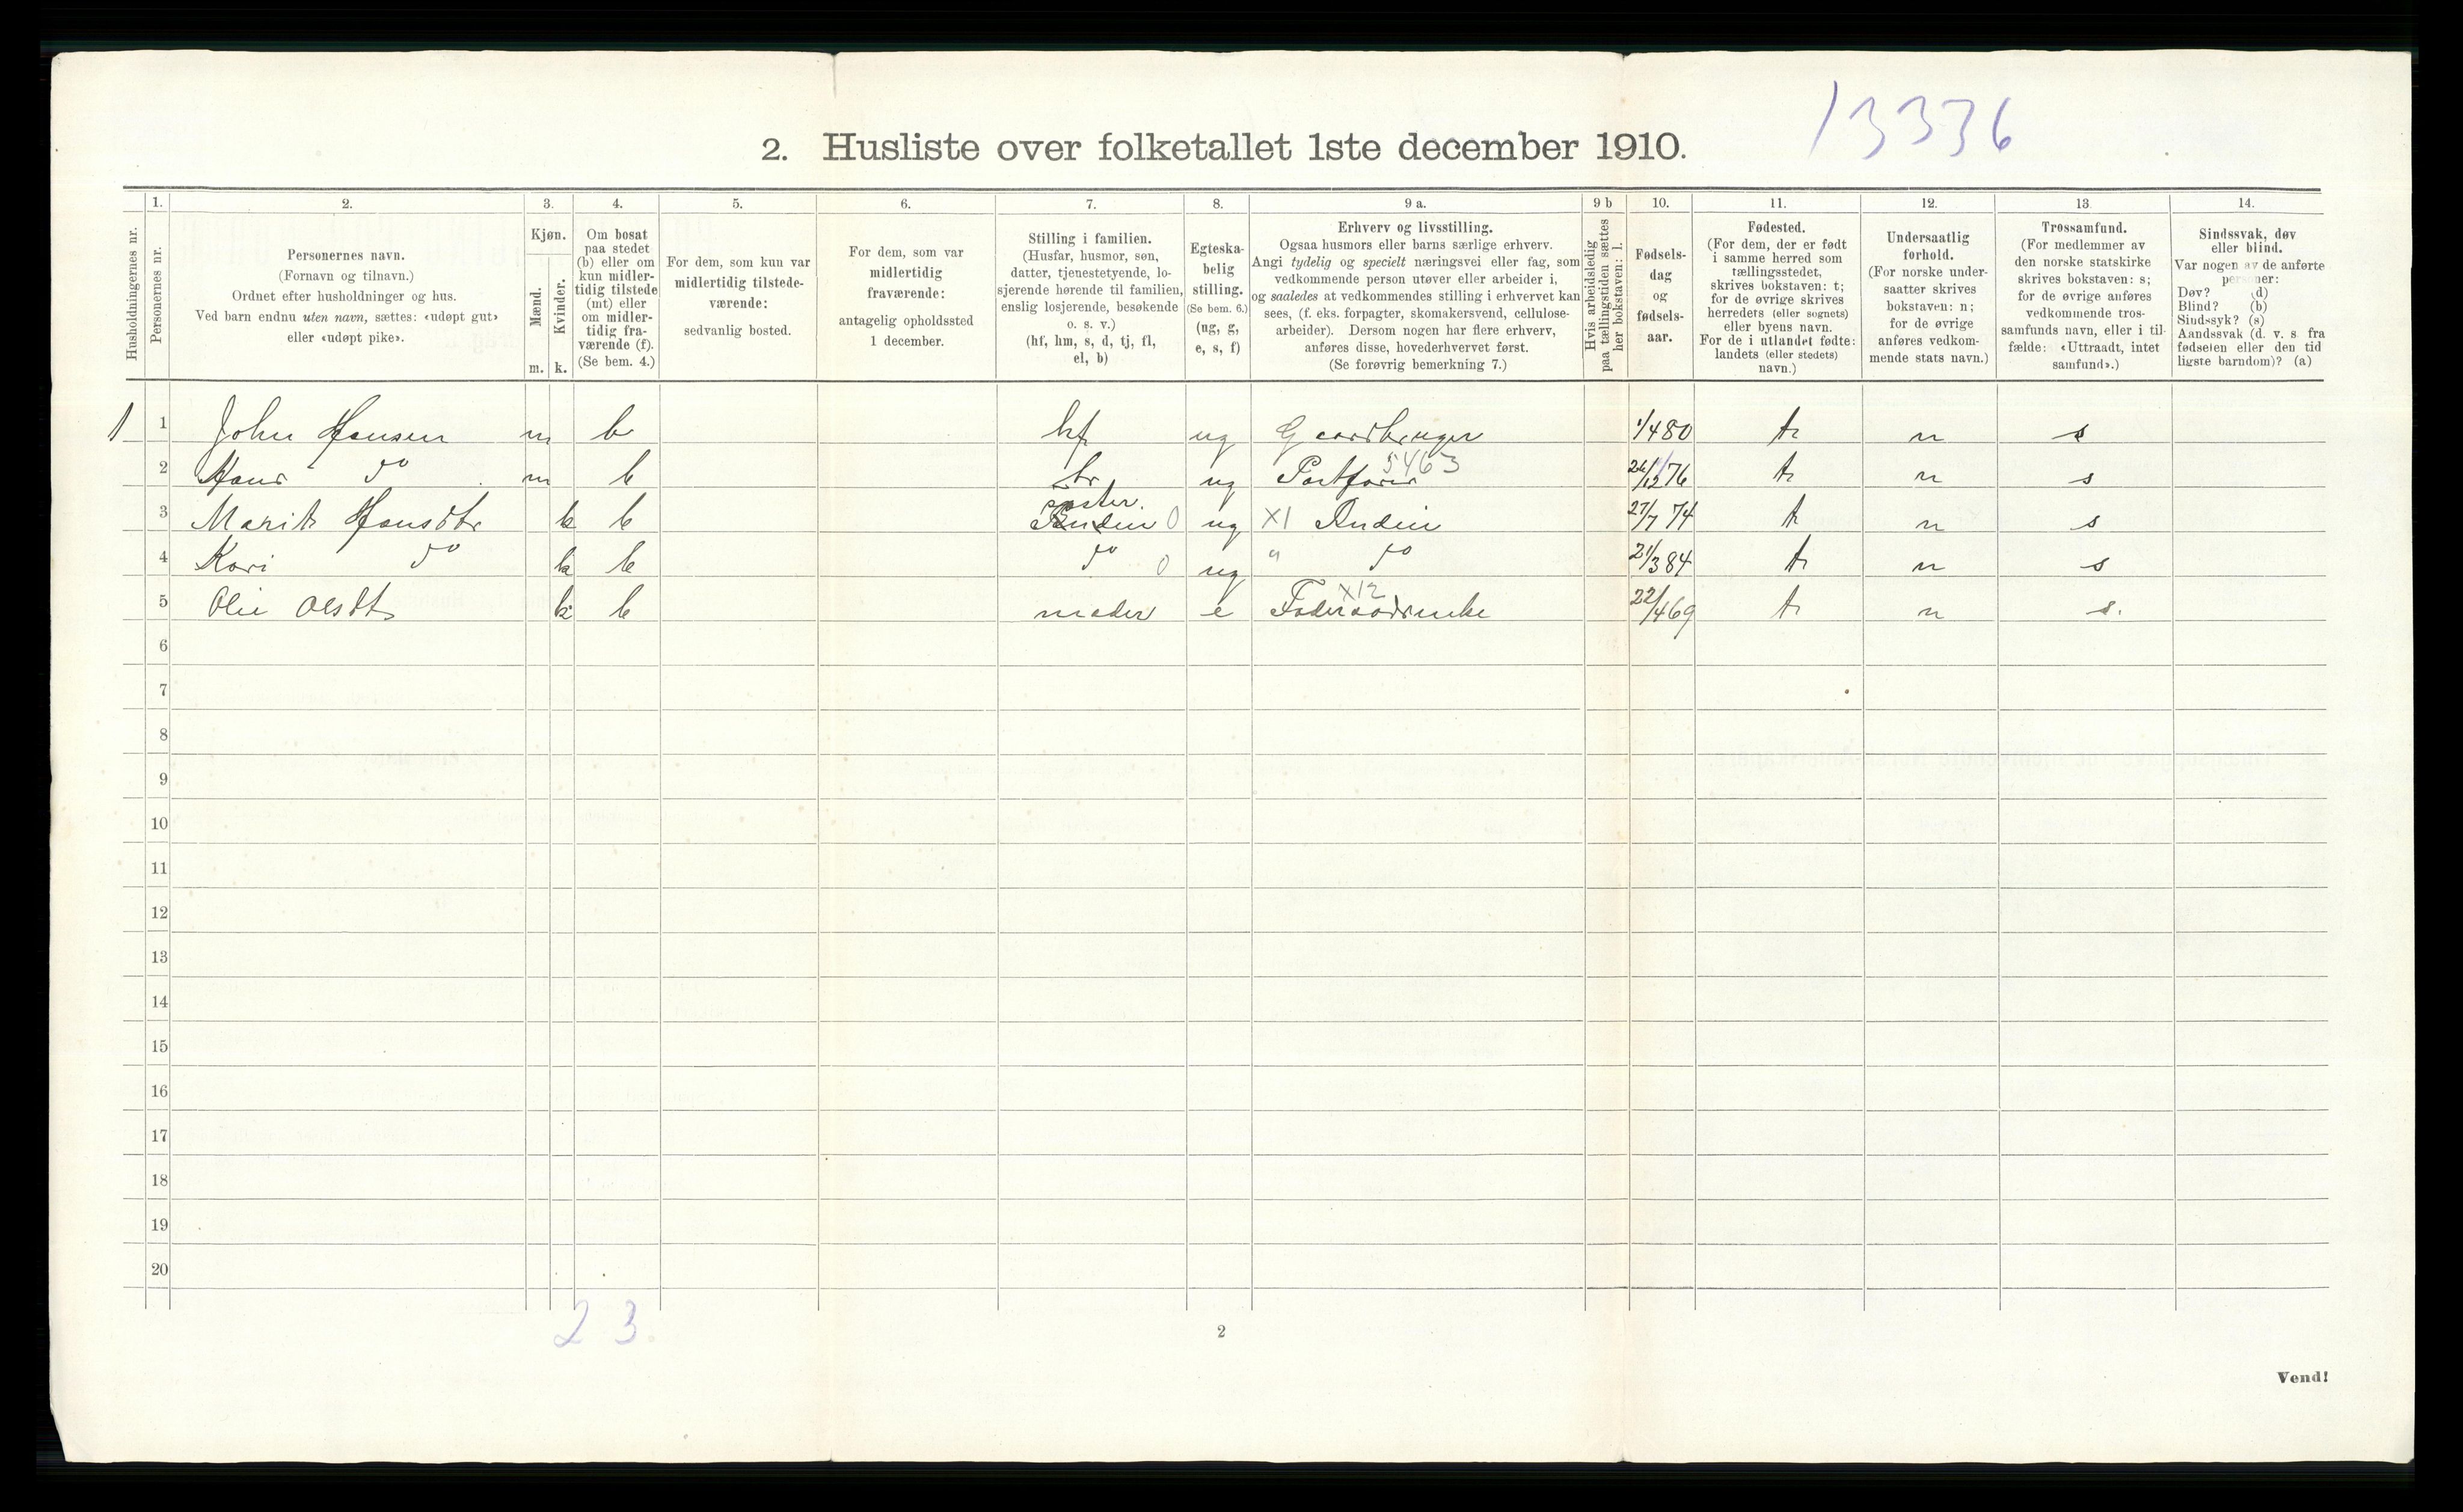 13336
2. Husliste over folketallet 1ste december 1910.
Husholdningernes nr.
1. Personernes nr.
2. Personernes navn.
(Fornavn og tilnavn.)
Ordnet efter husholdninger og hus.
Ved barn endnu uten navn, sættes: «udøpt gut»
eller «udøpt pike».
3. Kjøn.
Mænd. m.
Kvinder. k.
4. Om bosat
paa stedet
(b) eller om
kun midler-
tidig tilstede
(mt) eller
om midler-
tidig fra-
værende (f).
(Se bem. 4.)
5. For dem, som kun var
midlertidig tilstede-
værende:
sedvanlig bosted.
6. For dem, som var
midlertidig
fraværende:
antagelig opholdssted
1 december.
7. Stilling i familien.
(Husfar, husmor, søn,
datter, tjenestetyende, lo-
sjerende hørende til familien,
enslig losjerende, besøkende
o. s. v.)
(hf, hm, s, d, tj, fl,
el, b)
8. Egteska-
belig
stilling.
(Se bem. 6.)
(ug, g,
e, s, f)
9 a. Erhverv og livsstilling.
Ogsaa husmors eller barns særlige erhverv.
Angi tydelig og specielt næringsvei eller fag, som
vedkommende person utøver eller arbeider i,
og saaledes at vedkommendes stilling i erhvervet kan
sees, (f. eks. forpagter, skomakersvend, cellulose-
arbeider). Dersom nogen har flere erhverv,
anføres disse, hovederhvervet først.
(Se forøvrig bemerkning 7.)
9 b Hvis arbeidsledig
paa tællingstiden sættes
her bokstaven: l.
10. Fødsels-
dag
og
fødsels-
aar.
11. Fødested.
(For dem, der er født
i samme herred som
tællingsstedet,
skrives bokstaven: t;
for de øvrige skrives
herredets (eller sognets)
eller byens navn.
For de i utlandet fødte:
landets (eller stedets)
navn.)
12. Undersaatlig
forhold.
(For norske under-
saatter skrives
bokstaven: n;
for de øvrige
anføres vedkom-
mende stats navn.)
13. Trossamfund.
(For medlemmer av
den norske statskirke
skrives bokstaven: s;
for de øvrige anføres
vedkommende tros-
samfunds navn, eller i til-
fælde: «Uttraadt, intet
samfund».)
14. Sindssvak, døv
eller blind.
Var nogen av de anførte
personer:
Døv? (d)
Blind? (b)
Sindssyk? (s)
Aandssvak (d. v. s. fra
fødselen eller den tid
ligste barndom)? (a)
1 1 John Hansen m b hf ug Gaardbruger 1/4 80 t n s
2 Hans do m b br ug Postfører 5463 26/12 76 t n s
3 Marit Hansdtr k b søster 0 ug X1 Inderi 27/7 74 t n s
4 Kari do k b do 0 ug " do 21/3 84 t n s
5 Olie Olsdt k b moder e Føderaadsenke X12 22/4 69 t n s.
6
7
8
9
10
11
12
13
14
15
16
17
18
19
20
2 3.
2
Vend!